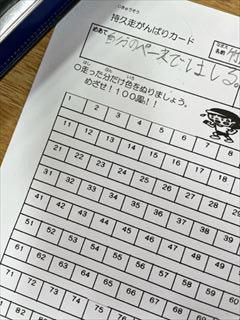 じきゅうそう
持久走がんばりカード
めあて
自分のペースではしる。
なまえ
名前
はし ぶん いろ
○走った分だけ色をぬりましょう。
めざせ！100周!!
1 2 3 4 5 6 7 8
11 12 13 14 15 16 17 18
21 22 23 24 25 26 27 28
31 32 33 34 35 36 37 38
41 42 43 44 45 46 47 48
51 52 53 54 55 56 57 58
61 62 63 64 65 66 67 68
71 72 73 74 75 76 77 78
82 83 84 85 86 87